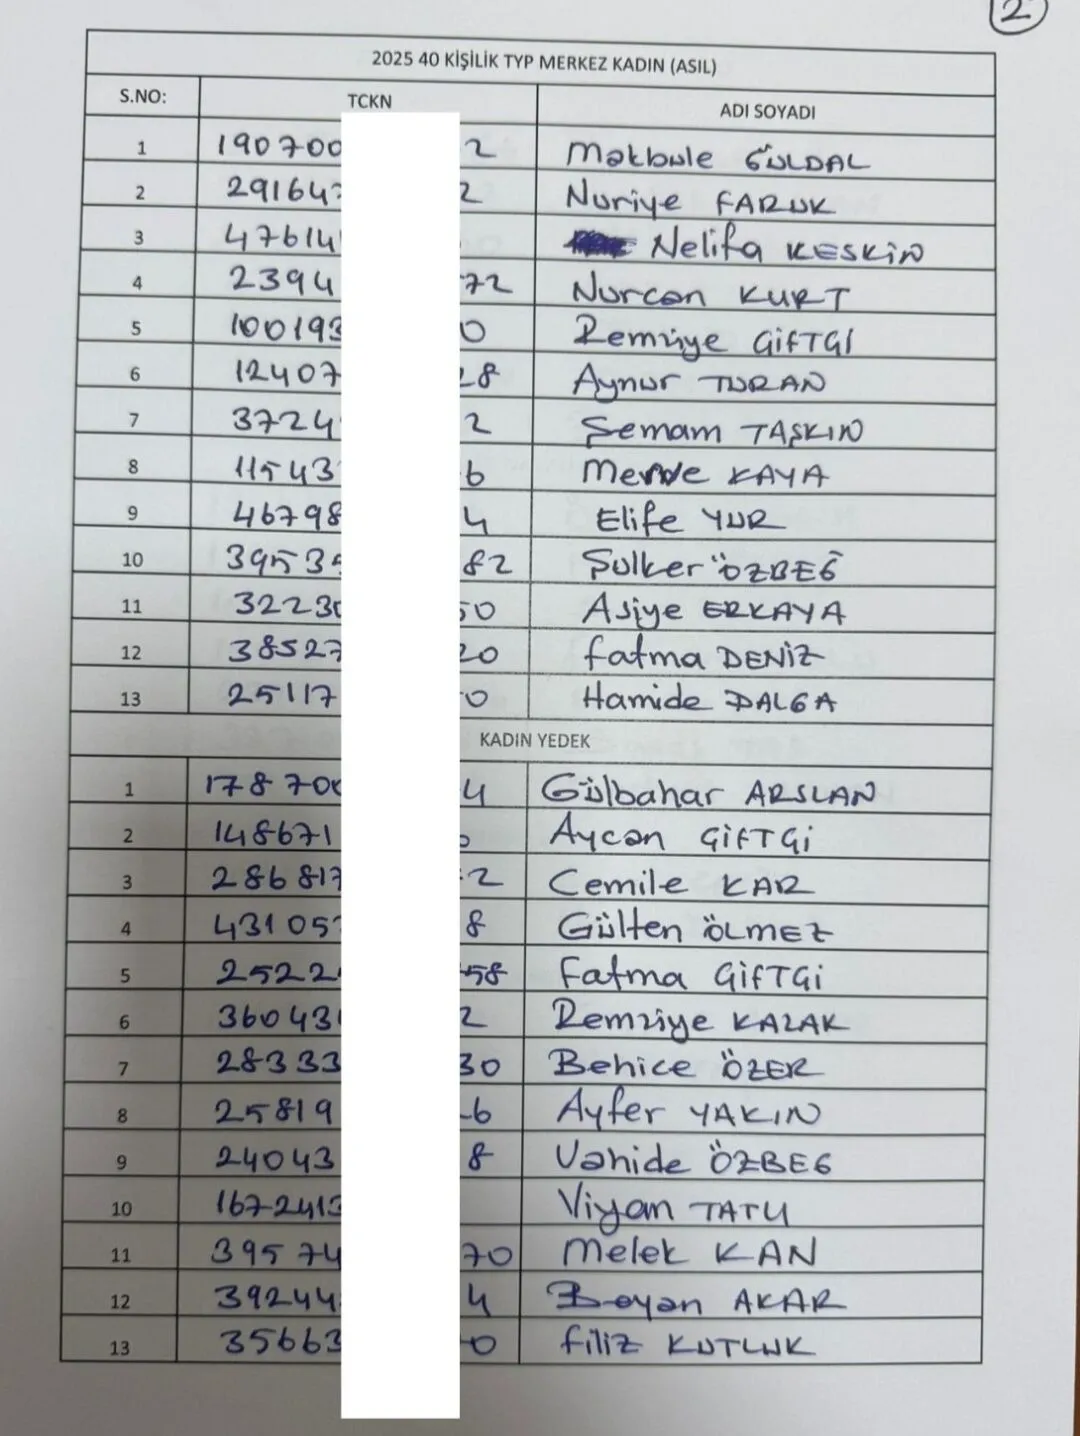 2
2025 40 KİŞİLİK TYP MERKEZ KADIN (ASIL)
S.NO: TCKN ADI SOYADI
1 190700 2 Makbule GÜLDAL
2 29164 2 Nuriye FARUK
3 47614 Nelifa KESKİN
4 2394 72 Nurcan KURT
5 100193 0 Remziye ÇİFTÇİ
6 12407 28 Aynur TURAN
7 3724 2 Semam TAŞKIN
8 11543 6 Merve KAYA
9 46798 4 Elife YUR
10 3953 82 Şulker ÖZBEĞ
11 3223 50 Asiye ERKAYA
12 38527 20 Fatma DENİZ
13 25117 0 Hamide DALGA
KADIN YEDEK
1 178700 4 Gülbahar ARSLAN
2 148671 Aycan ÇİFTÇİ
3 286817 2 Cemile KAR
4 43105 8 Gülten ÖLMEZ
5 2522 58 Fatma ÇİFTÇİ
6 36043 2 Remziye KAZAK
7 28333 30 Behice ÖZER
8 25819 6 Ayfer YAKIN
9 24043 8 Vahide ÖZBEG
10 1672413 Viyan TATU
11 39574 70 Melek KAN
12 39244 4 Beyan AKAR
13 35663 0 Filiz KUTLUK